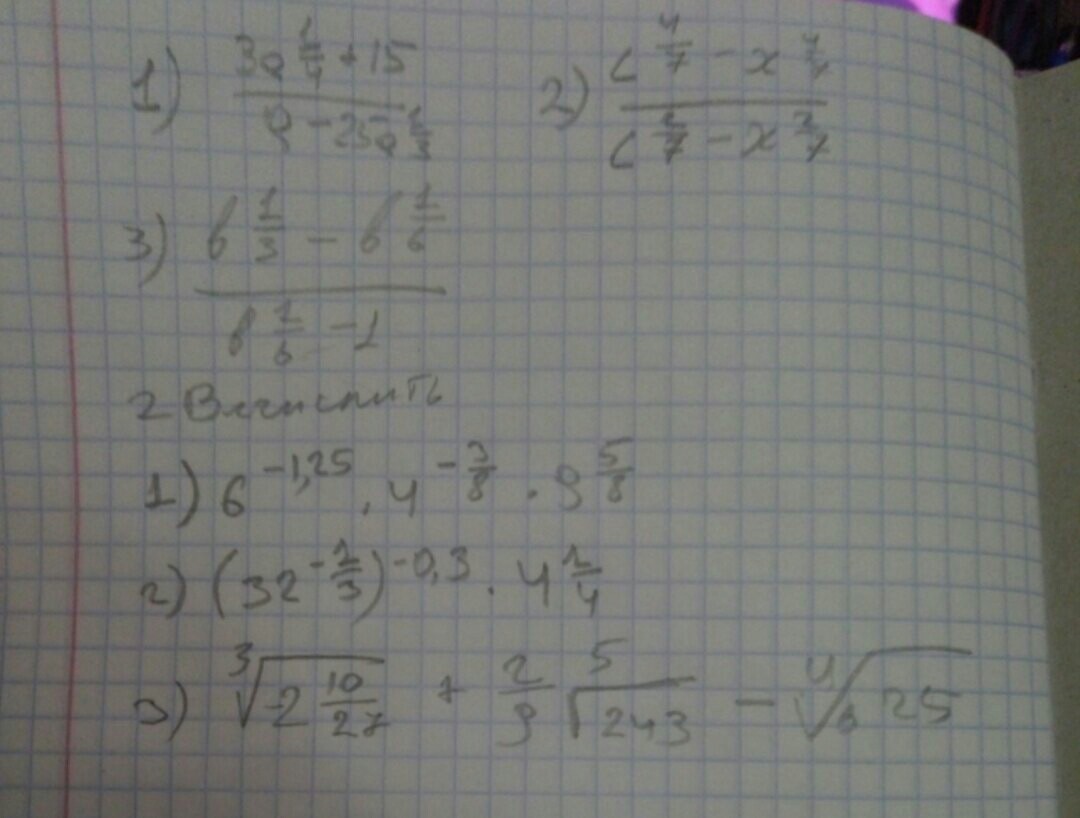 1) (3a^(1/4) + 15)/(a - 25a^(1/3)) 2) (c^(4/7) - x^(4/7))/(c^(2/7) - x^(2/7))
3) (b^(1/3) - b^(1/6))/(b^(1/6) - 1)
2 Вычислить
1) 6^(-1,25) · 4^(-3/8) · 9^(5/8)
2) (32^(-1/3))^(-0,3) · 4^(1/4)
3) ∛(-2 10/27) + 2/9 ⁵√243 - ⁴√625